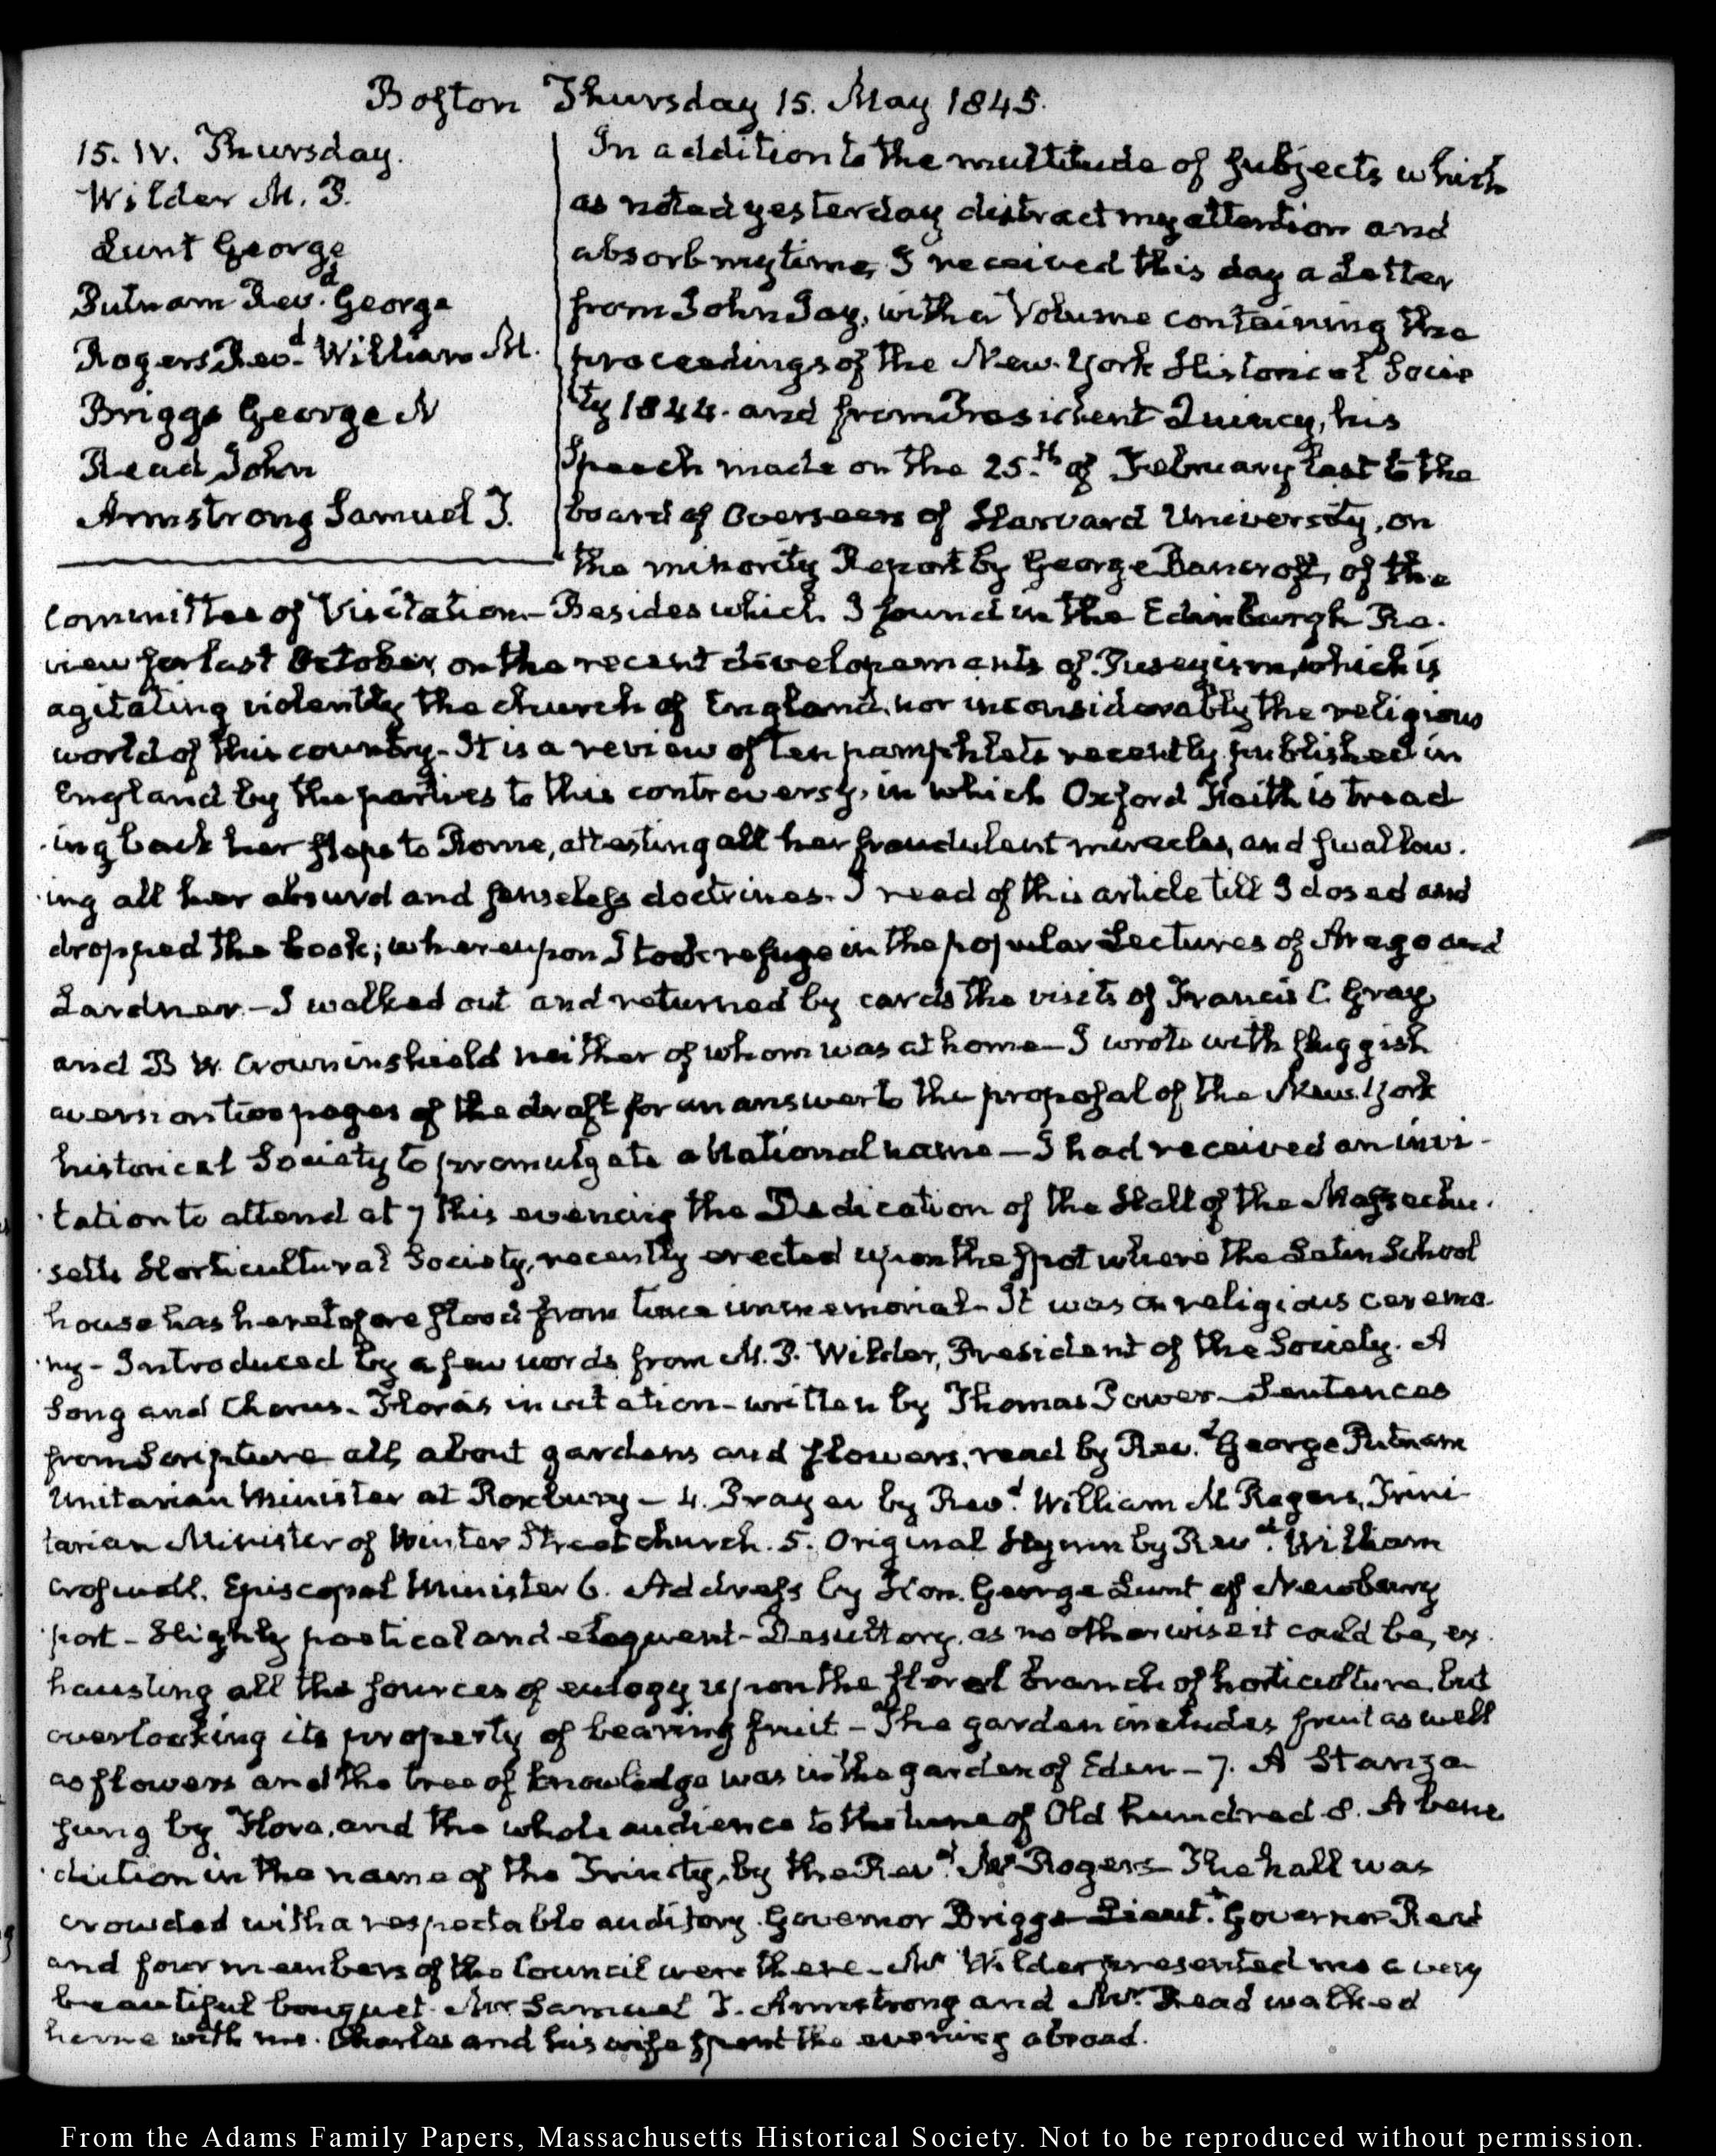 Boston Thursday 15. May 1845.
15. IV. Thursday.
Wilder M. P.
Lunt George
Putnam Revd. George
Rogers Revd. William M.
Briggs George N
Read John
Armstrong Samuel T.
In addition to the multitude of subjects which
as noted yesterday distract my attention and
absorb my time, I received this day a Letter
from John Jay, with a Volume containing the
proceedings of the New-York Historical Socie
ty 1844. and from President Quincy, his
Speech made on the 25.th of February last to the
board of Overseers of Harvard University, on
the minority Report by George Bancroft, of the
Committee of Visitation- Besides which I found in the Edinburgh Re-
view for last October, on the recent developements of Puseyism, which is
agitating violently the church of England, nor inconsiderably the religious
world of this country- It is a review of ten pamphlets recently published in
England by the parties to this controversy, in which Oxford Faith is tread
ing back her steps to Rome, attesting all her fraudulent miracles, and swallow-
ing all her absurd and senseless doctrines. I read of this article till I dosed and
dropped the book; whereupon I took refuge in the popular Lectures of Arago and
Lardner.- I walked out and returned by cards the visits of Francis C. Gray
and B W. Crowninshield neither of whom was at home- I wrote with sluggish
aversion two pages of the draft for an answer to the proposal of the New-York
historical Society to promulgate a National name - I had received an invi-
tation to attend at 7 this evening the Dedication of the Hall of the Massachu-
setts Horticultural Society, recently erected upon the spot where the Latin School
house has heretofore stood from time immemorial- It was a religious ceremo-
ny - Introduced by a few words from M. P. Wilder, President of the Society. A
Song and Chorus- Flora's invitation- written by Thomas Power- Sentences
from Scripture all about gardens and flowers, read by Revd. George Putnam
Unitarian Minister at Roxbury - 4. Prayer by Revd. William M Rogers, Trini-
tarian Minister of Winter Street church. 5. Original Hymn by Revd. William
Croswell, Episcopal Minister 6. Address by Hon. George Lunt of Newbury
port - Slightly poetical and eloquent- Desultory, as no otherwise it could be, ex-
hausting all the sources of eulogy upon the floral branch of horticulture, but
overlooking its property of bearing fruit - The garden includes fruit as well
as flowers and the tree of knowledge was in the garden of Eden - 7. A Stanza
sung by Flora, and the whole audience to the tune of Old hundred 8. A bene
diction in the name of the Trinity, by the Revd. Mr Rogers- The hall was
crowded with a respectable auditory. Governor Briggs- Lieut.t Governor Read
and four members of the Council were there- Mr Wilder presented me a very
beautiful bouquet. Mr Samuel T. Armstrong and Mr. Read walked
home with me. Charles and his wife spent the evening abroad.
From the Adams Family Papers, Massachusetts Historical Society. Not to be reproduced without permission.